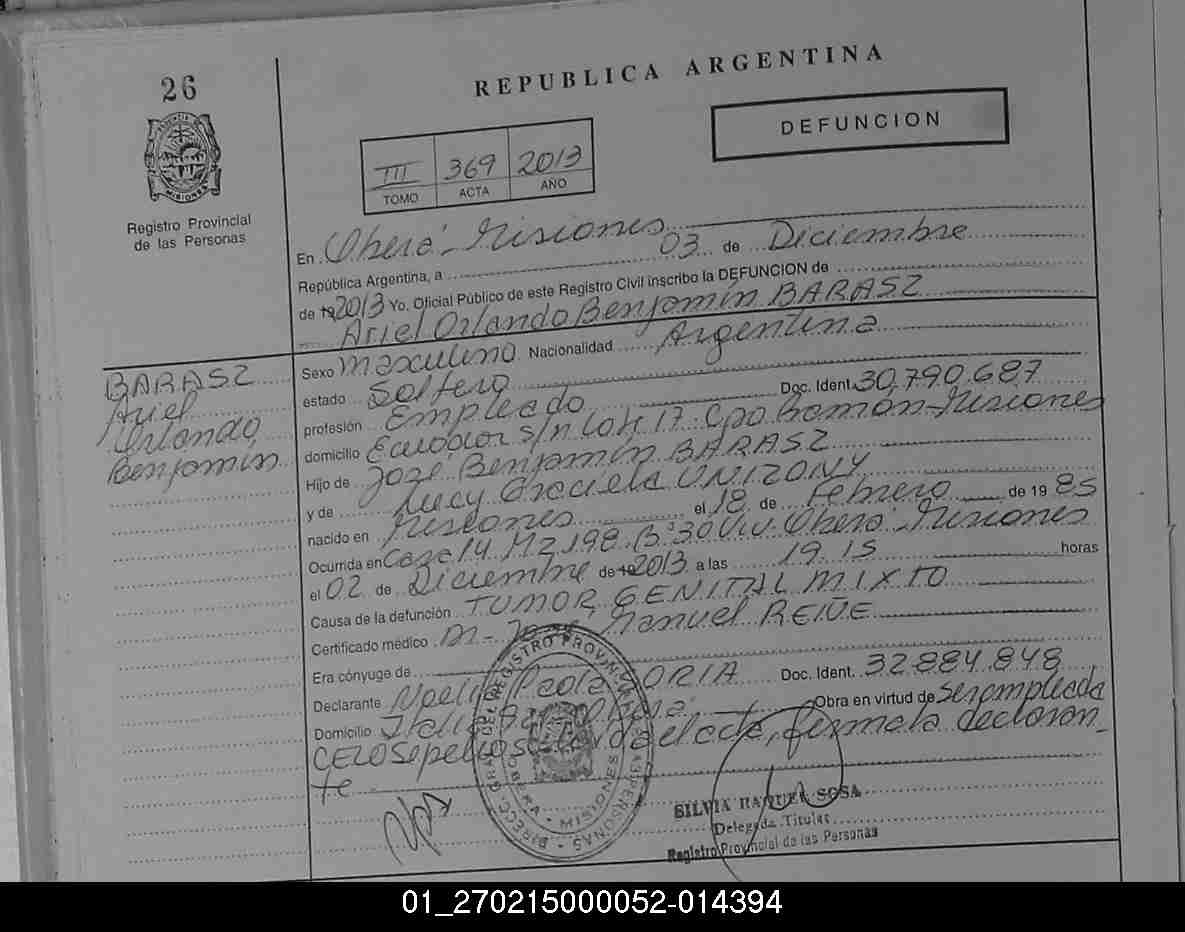 26
REPUBLICA ARGENTINA
DEFUNCION
III 369 2013
TOMO ACTA AÑO
Registro Provincial
de las Personas
En Oberá - Misiones
República Argentina, a 03 de Diciembre
de 19 2013 Yo. Oficial Público de este Registro Civil inscribo la DEFUNCION de
Ariel Orlando Benjamín BARASZ
BARASZ
Ariel
Orlando
Benjamín
Sexo Masculino Nacionalidad Argentina
estado Soltero
profesión Empleado Doc. Ident. 30.790.687
domicilio Ecuador s/n Lote 17 - Cpo Ramón - Misiones
Hijo de José Benjamín BARASZ
y de Lucy Graciela UNIZONY
nacido en Misiones el 18 de Febrero de 19 85
Ocurrida en Casa 14 Mz 198 B° 30 Viv. Oberá - Misiones
el 02 de Diciembre de 19 2013 a las 19.15 horas
Causa de la defunción TUMOR GENITAL MIXTO
Certificado médico M - José Manuel REIÑE
Era cónyuge de
Declarante DORIA Doc. Ident. 32.884.848
Domicilio Obra en virtud de Ser empleada
CELO Sepelios el acta, firma la declaran-
te
DIRECC. GRAL. DEL REGISTRO PROVINCIAL DE LAS PERSONAS
OBERA - MISIONES
SILVIA RAQUEL SOSA
Delegada Titular
Registro Provincial de las Personas
01_270215000052-014394